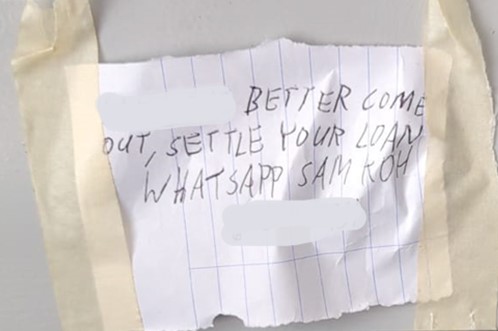 BETTER COME
OUT, SETTLE YOUR LOAN
WHATSAPP SAM KOH